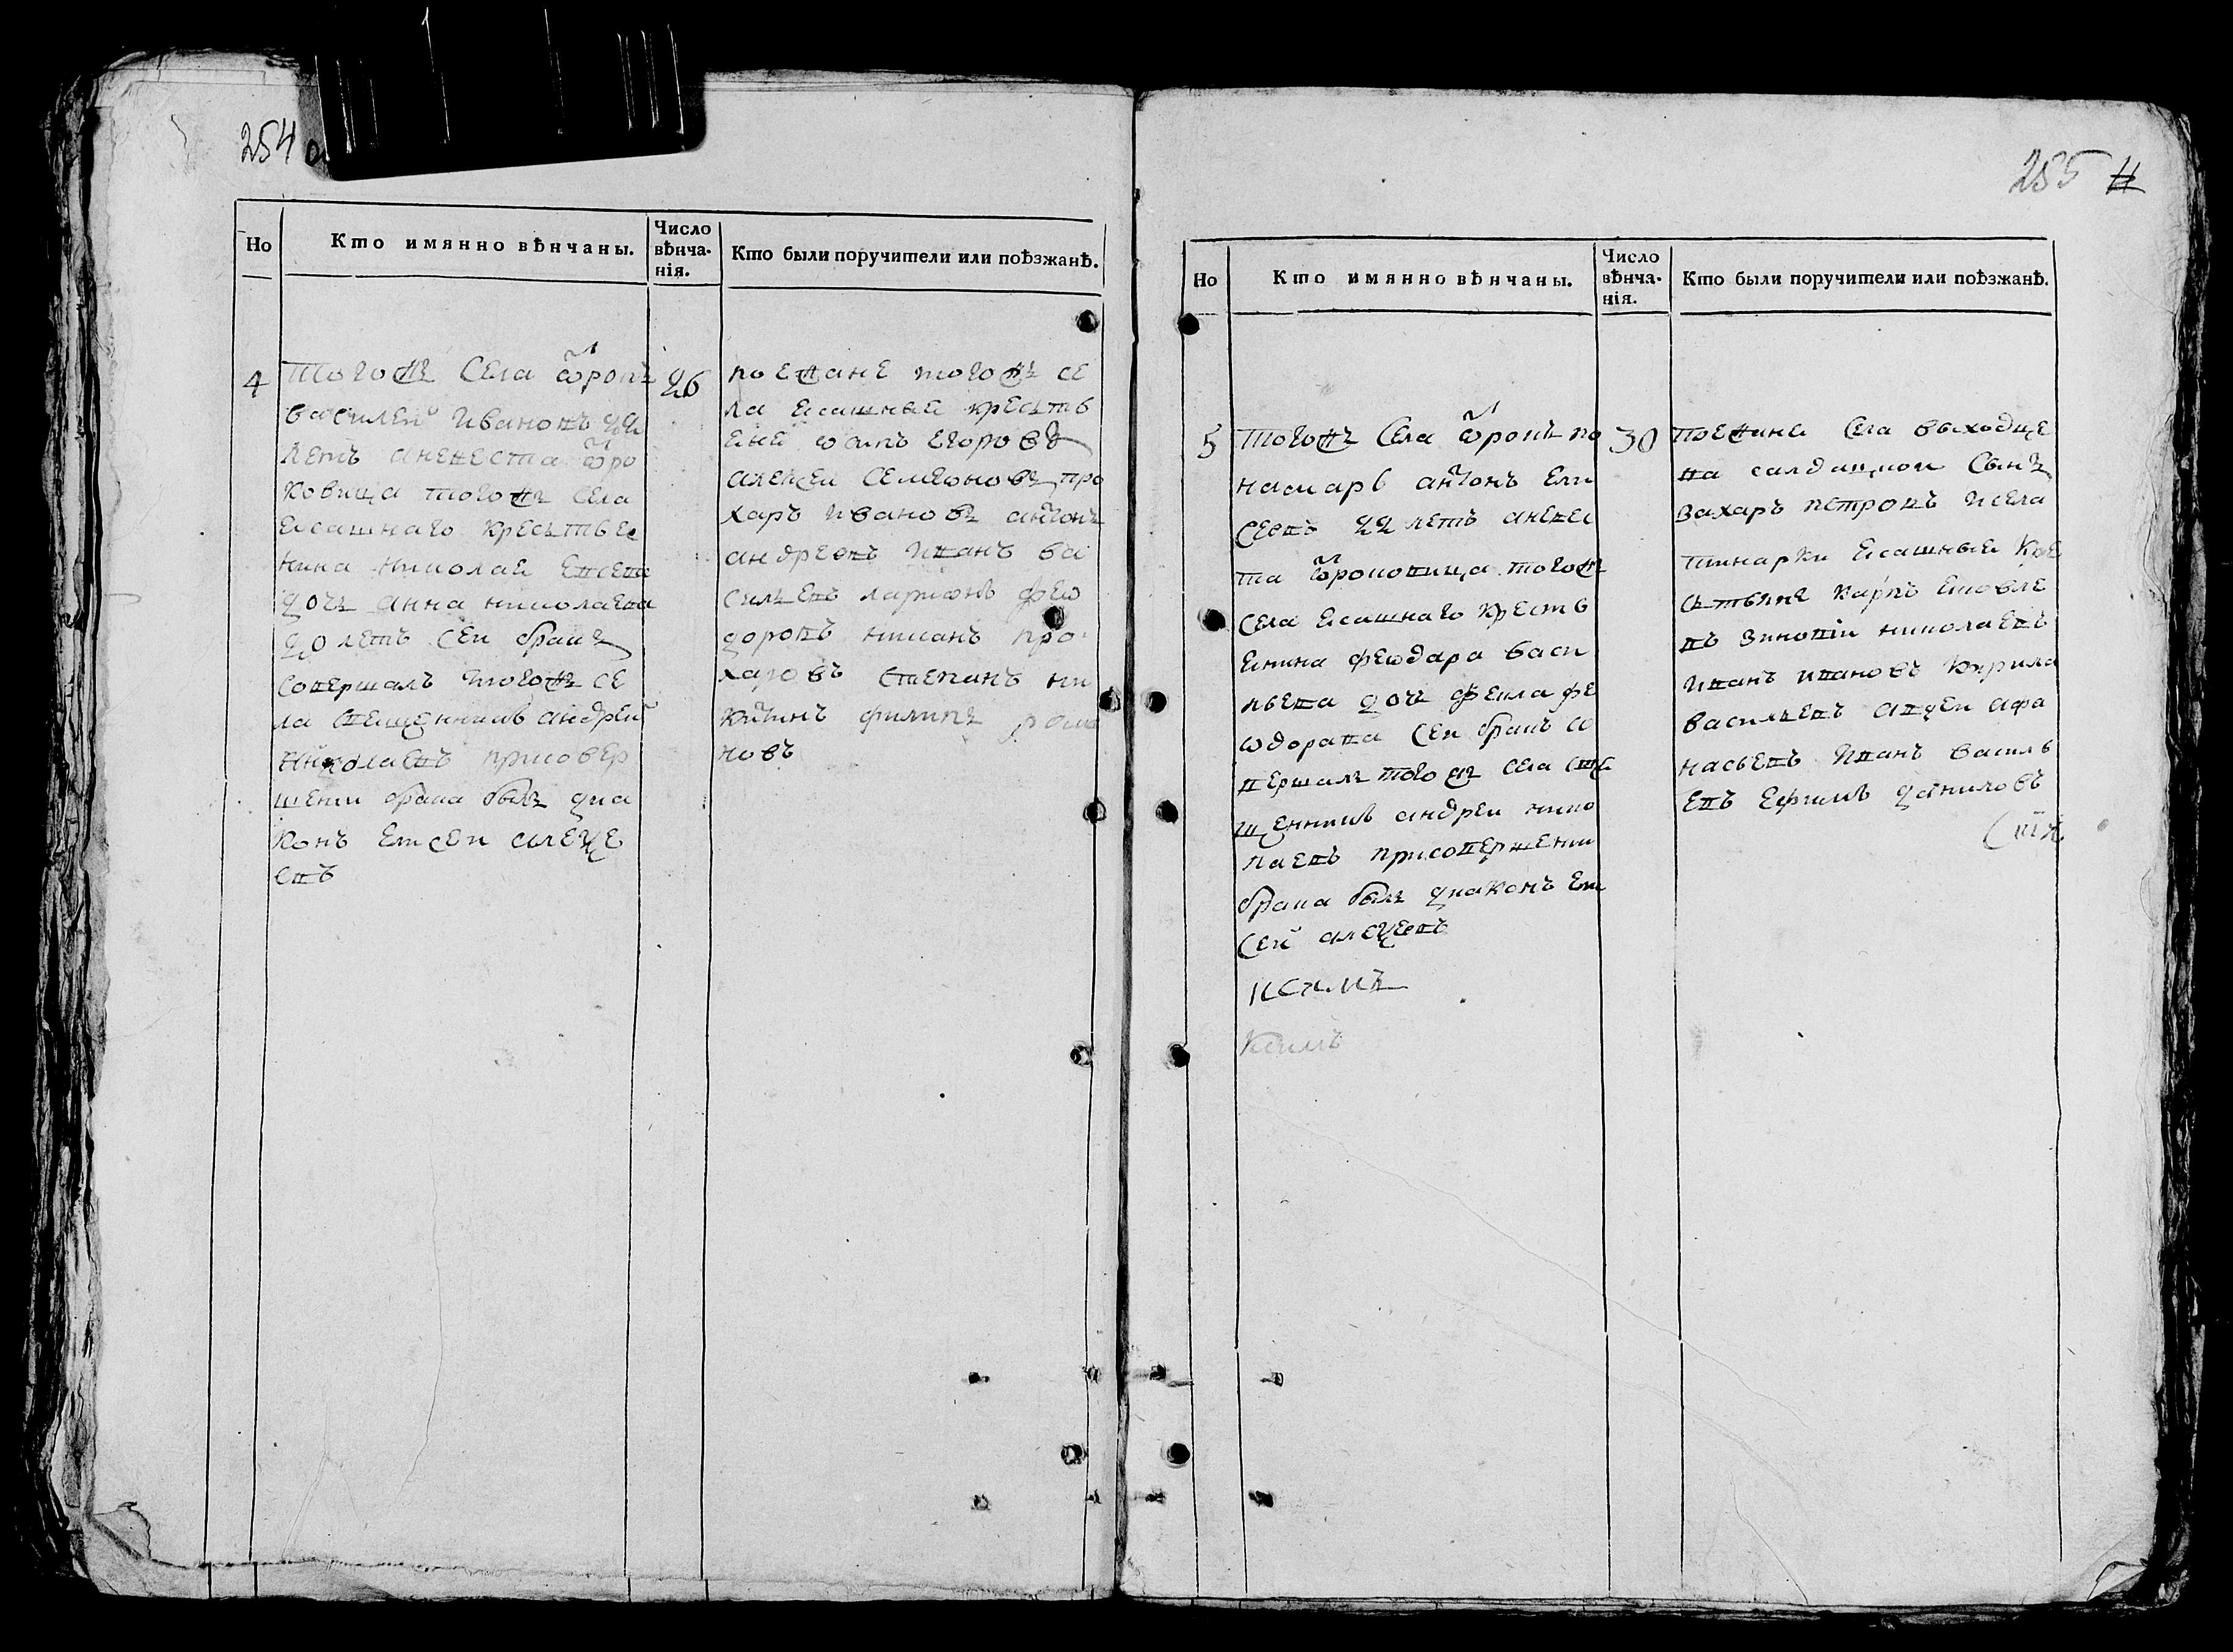 254 о
Но
Кто имянно вѣнчаны.
Число вѣнча-нія.
Кто были поручители или поѣзжанѣ.
4
тогожъ села ѿрокъ
василей ивановъ 22
летъ аневеста ѿро
ковица тогожъ села
ясашнаго крестье
нина николая
дочь анна николаева
20 летъ сеи бракъ
совершалъ тогожъ се
ла священникъ андрей
николаевъ присовер
шении брака былъ диа
конъ елисеи алеѯе
евъ
26
поежане тогожъ се
ла ясашныя крестья
яне егоровъ
алеѯеи семеоновъ про
харъ ивановъ антонъ
андреевъ иванъ ва
сильевъ ларионъ фео
доровъ иванъ про
харовъ степанъ ни
китинъ филипъ рома
новъ
255
Но
Кто имянно вѣнчаны.
Число вѣнча-нія.
Кто были поручители или поѣзжанѣ.
5
тогожъ села ѿрокъ по
намарь антонъ ели
сеевъ 22 летъ аневес
та ѿроковица тогожъ
села ясашнаго кресть
янина феодара васи
льева дочь фекла фе
одорава сеи бракъ со
вершалъ тогожъ села свя
щенникъ андреи нико
лаевъ присовершении
брака былъ диаконъ ели
сей алеѯеевъ
исимъ
Ксимъ
30
поежаня села выходце
ва салдацкои сынъ
захаръ петровъ исела
ясашныя кре
стьяне карпъ яковле
въ зиновіи николаевъ
иванъ ивановъ кирила
васильевъ авдеи афа
насьевъ иванъ василь
евъ ефимъ даниловъ